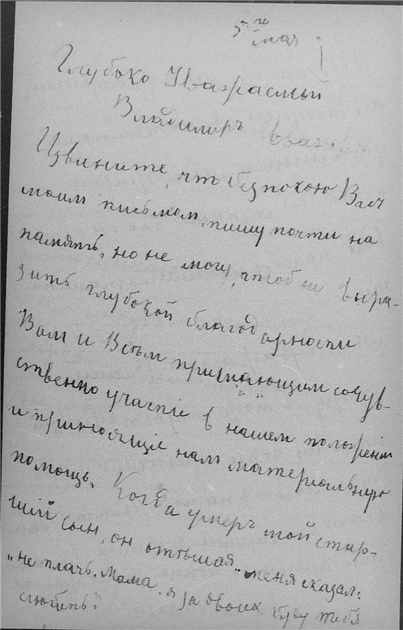 5го мая
Глубоко Уважаемый
Владимиръ
Извините, что безпокою Васъ
моим письмом, пишу почти на
память, но не могу, чтоб не выра-
зить глубокой благодарности
Вам и Всѣм принимающим сочув-
ственно участіе в нашем положеніи
и приносящіе нам матеріальную
помощь. Когда умеръ мой стар-
шій сын, он меня сказал:
„не плачь, мама, я за двоих буду тебя